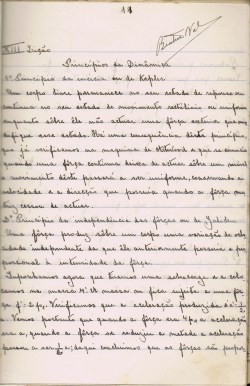 11
XVIII Lição
Princípios da Dinâmica
1º Princípio da inércia ou de Kepler
Um corpo livre permanece no seu estado de repouso ou
continua no seu estado de movimento rectilíneo e uniforme
enquanto sobre êle não actuar uma fôrça exterior que mo-
difique esse estado. Foi uma consequência dêste princípio
que já verificamos na maquina de Attwood e que se enuncia
quando uma fôrça contínua deixa de actuar sobre um móvel
o movimento dêste passará a ser uniforme, conservando a
velocidade e a direcção que possuia quando a fôrça
cessou de actuar.
2º Princípio da independência das fôrças ou de Galileu
Uma fôrça produz sôbre um corpo uma variação de velo-
cidade independente da que êle anteriormente possuia e pro-
porcional à intensidade da fôrça.
Suponhamos agora que tinamos uma sobrecarga e a colo-
camos na
fôrça Verificamos que a aceleração produzida é
Vemos portanto que quando a fôrça era a aceleração
era e, quando a fôrça se reduziu a metade a aceleração
passou a ser daqui concluimos que as fôrças são propor-